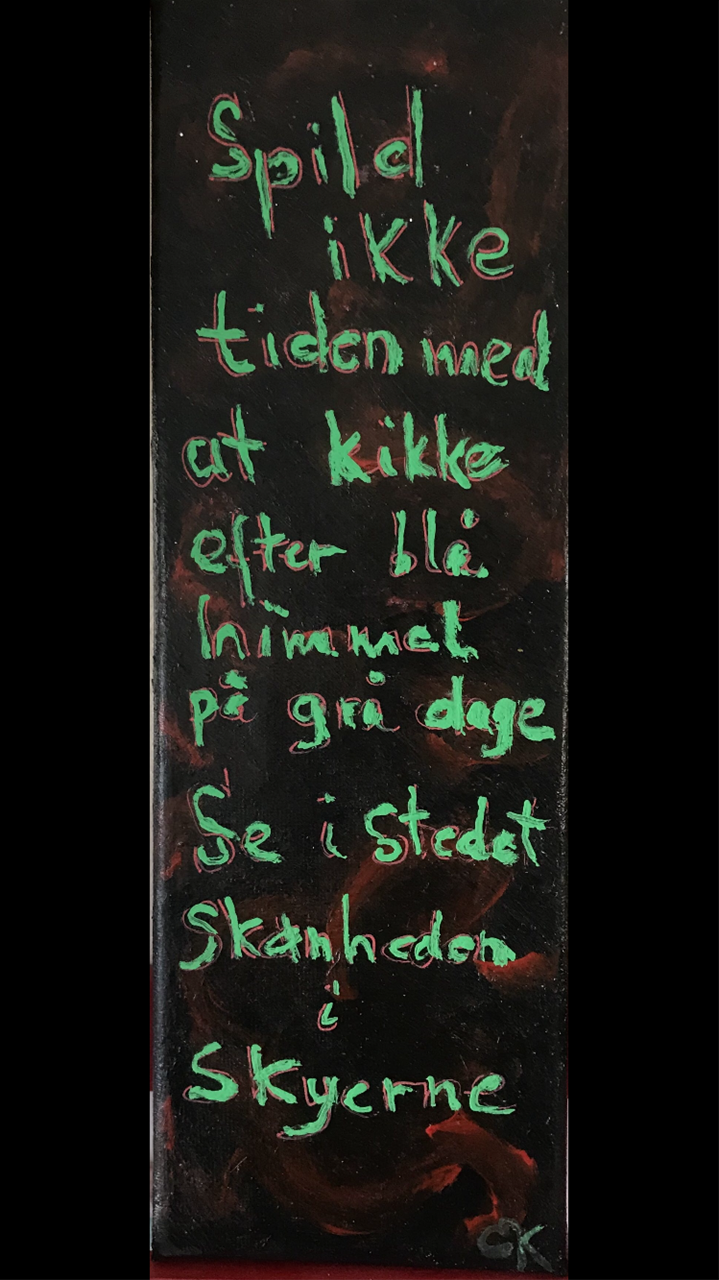 Spild
ikke
tiden med
at kikke
efter blå
himmel
på grå dage
Se i stedet
Skønheden
i
Skyerne
CK